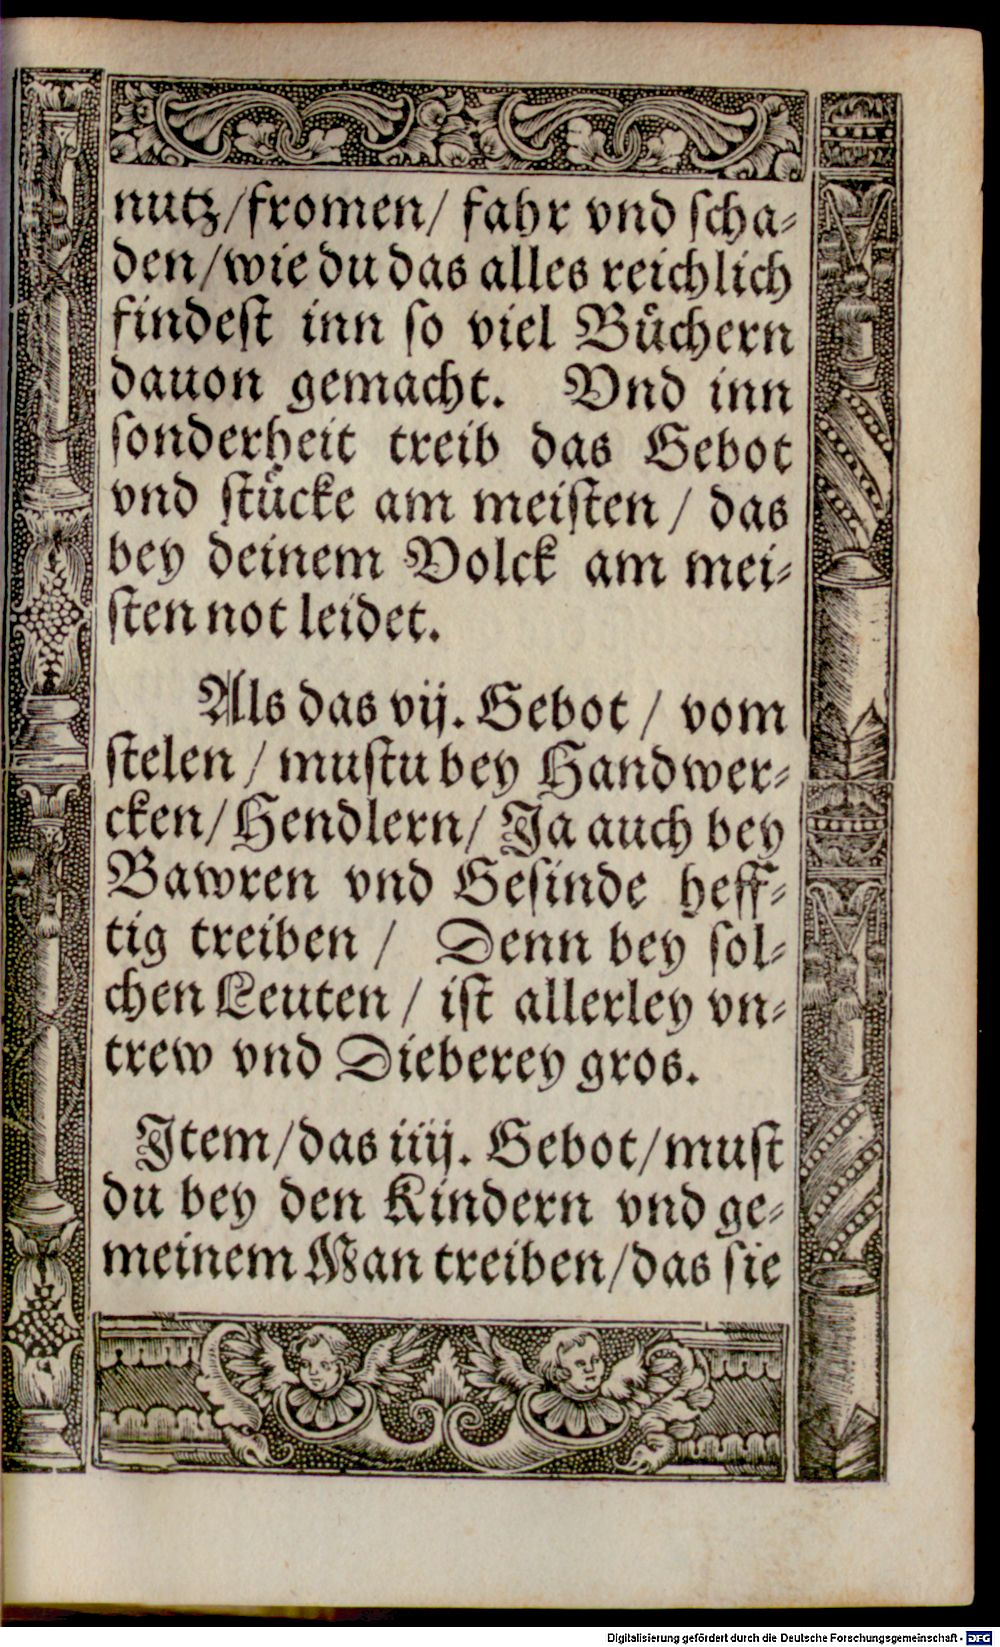 nutz/fromen/ fahr vnd ſcha⸗
den/wie du das alles reichlich
findest inn ſo viel Buͤchern
dauon gemacht. Vnd inn
ſonderheit treib das Gebot
vnd ſtuͤcke am meiſten / das
bey deinem Volck am mei⸗
ſten not leidet.
Als das vij. Gebot / vom
ſtelen / muſtu bey Handwer⸗
cken/ Hendlern/ Ja auch bey
Bawren vnd Geſinde heff⸗
tig treiben / Denn bey ſol⸗
chen Leuten / iſt allerley vn⸗
trew vnd Dieberey gros.
Item/das iiij. Gebot/muſt
du bey den Kindern vnd ge⸗
meinem Man treiben/das ſie
Digitalisierung gefördert durch die Deutsche Forschungsgemeinschaft - DFG